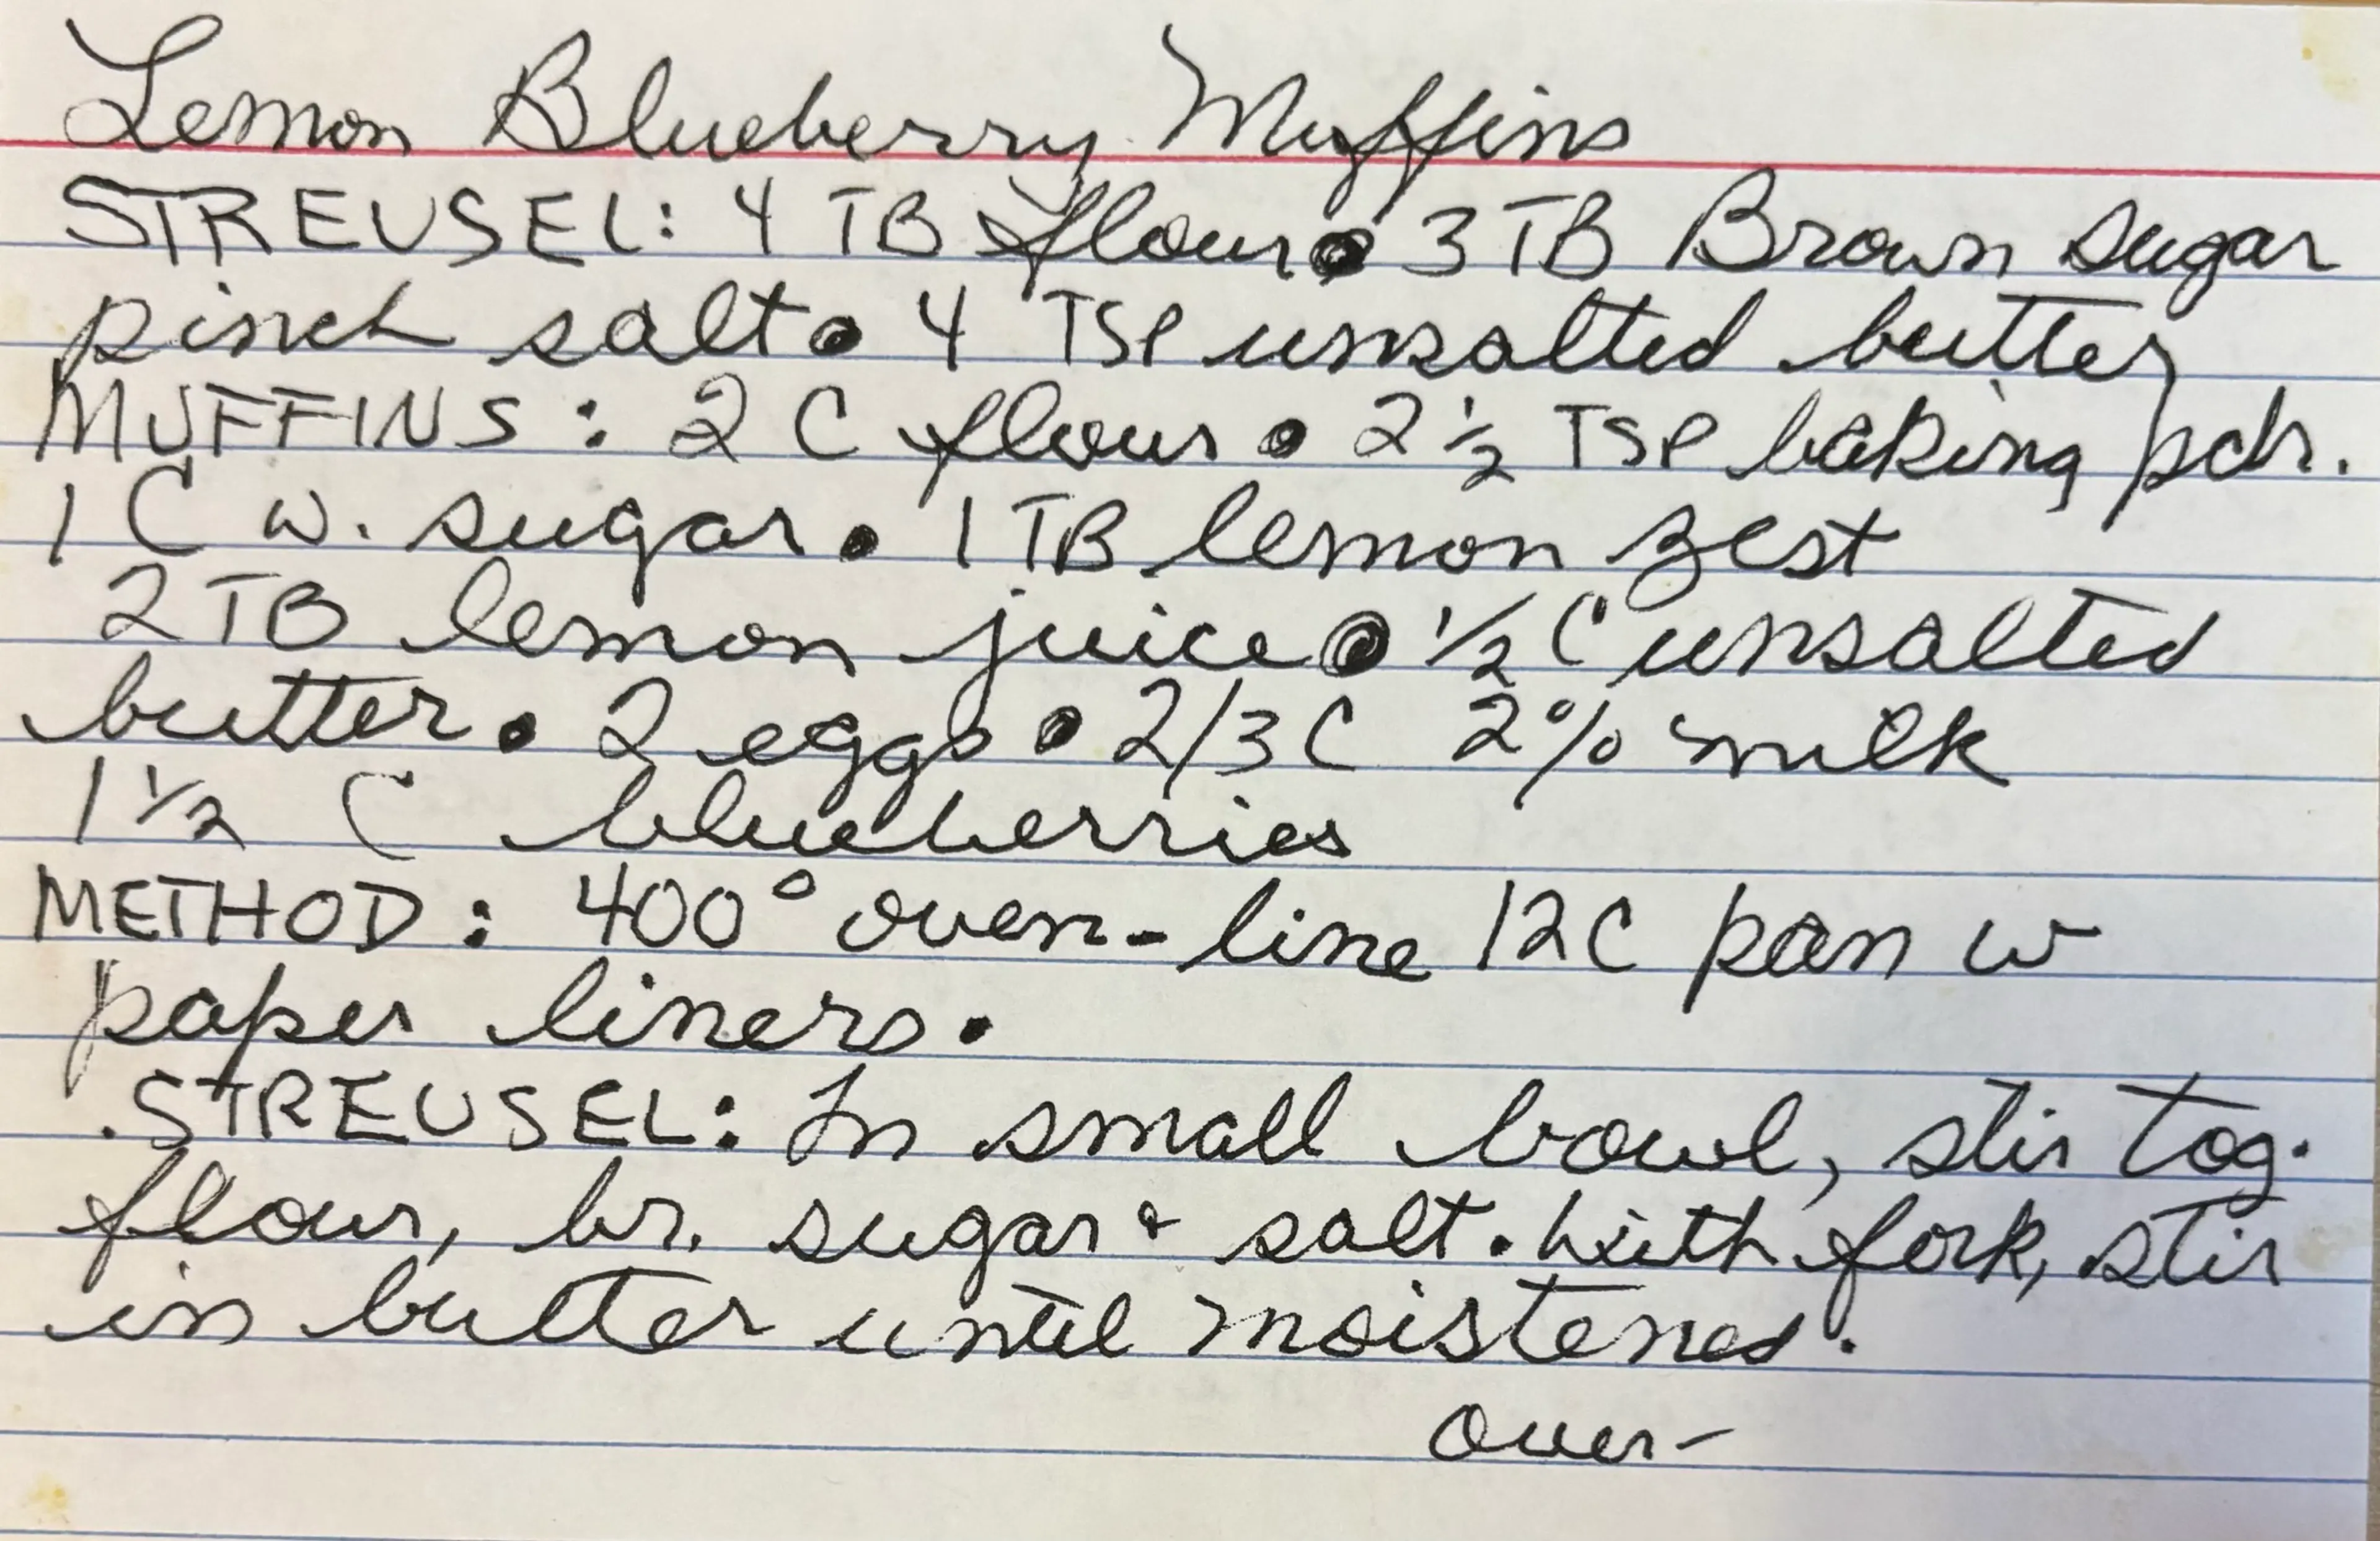 Lemon Blueberry Muffins
STREUSEL: 4 TB flour • 3 TB Brown sugar
pinch salt • 4 TSP unsalted butter
MUFFINS: 2 C flour • 2 ½ TSP baking pdr.
1 C w. sugar • 1 TB lemon zest
2 TB lemon juice • ½ C unsalted
butter • 2 eggs • 2/3 C 2% milk
1 ½ C blueberries
METHOD: 400° oven - line 12C pan w
paper liners.
.STREUSEL: In small bowl, stir tog.
flour, br. sugar & salt. With fork, stir
in butter until moistened.
over-